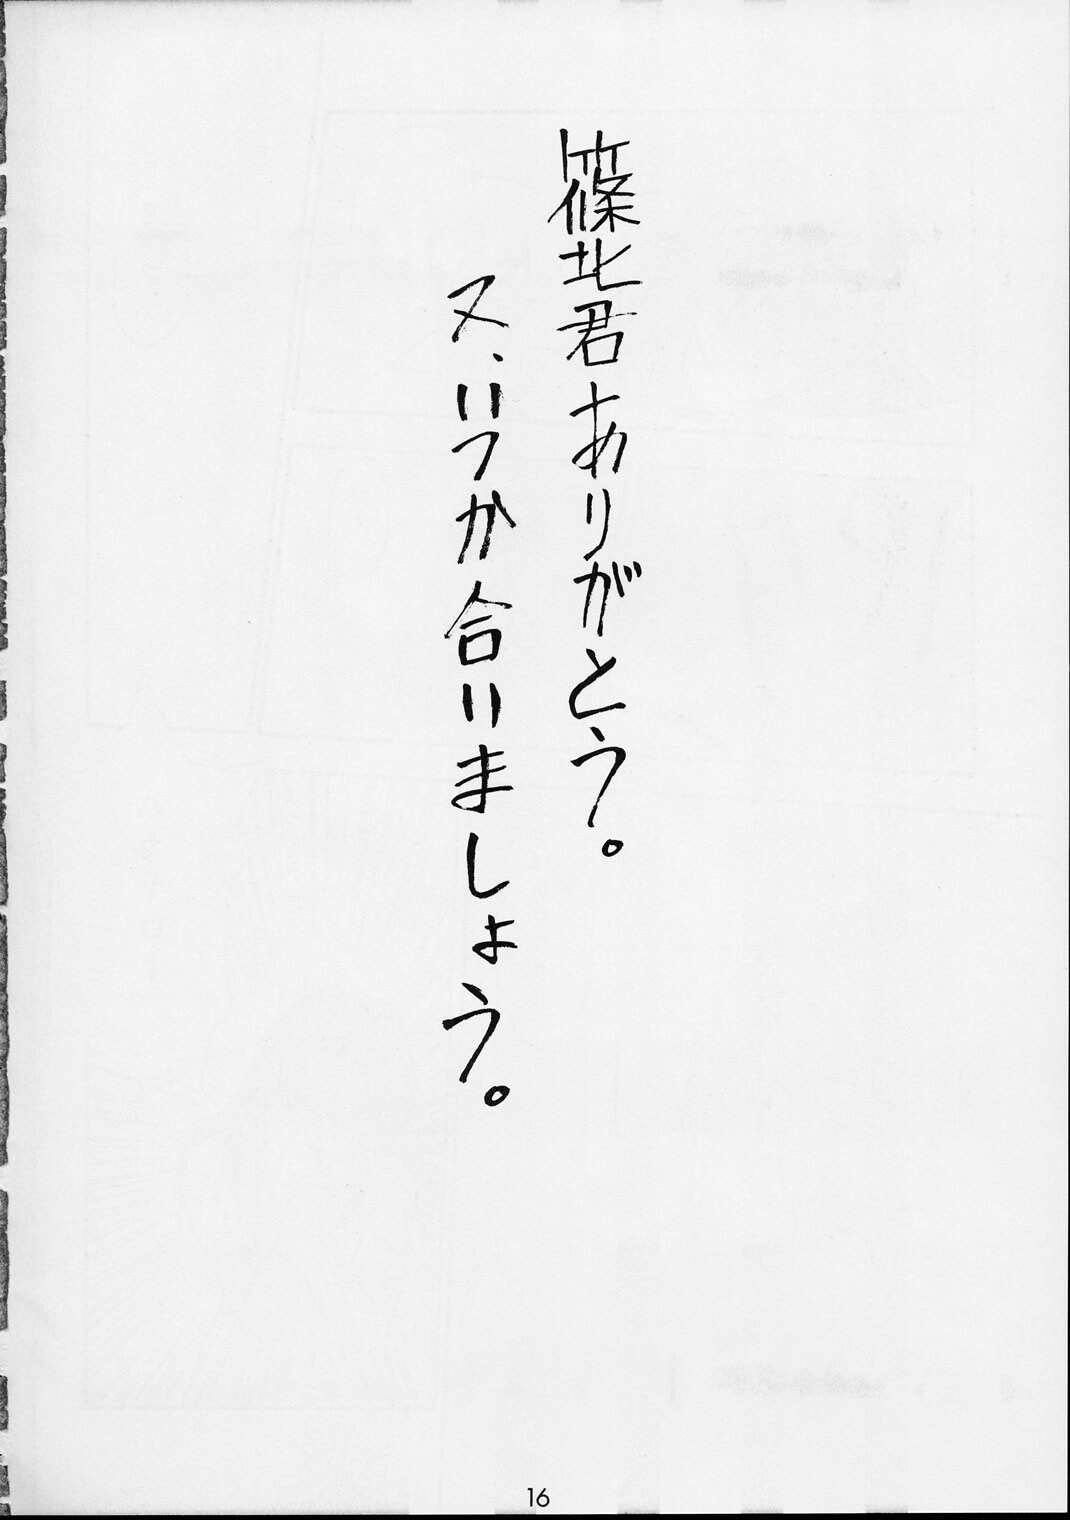 篠北君ありがとう。
又、いつか合いましょう。
16